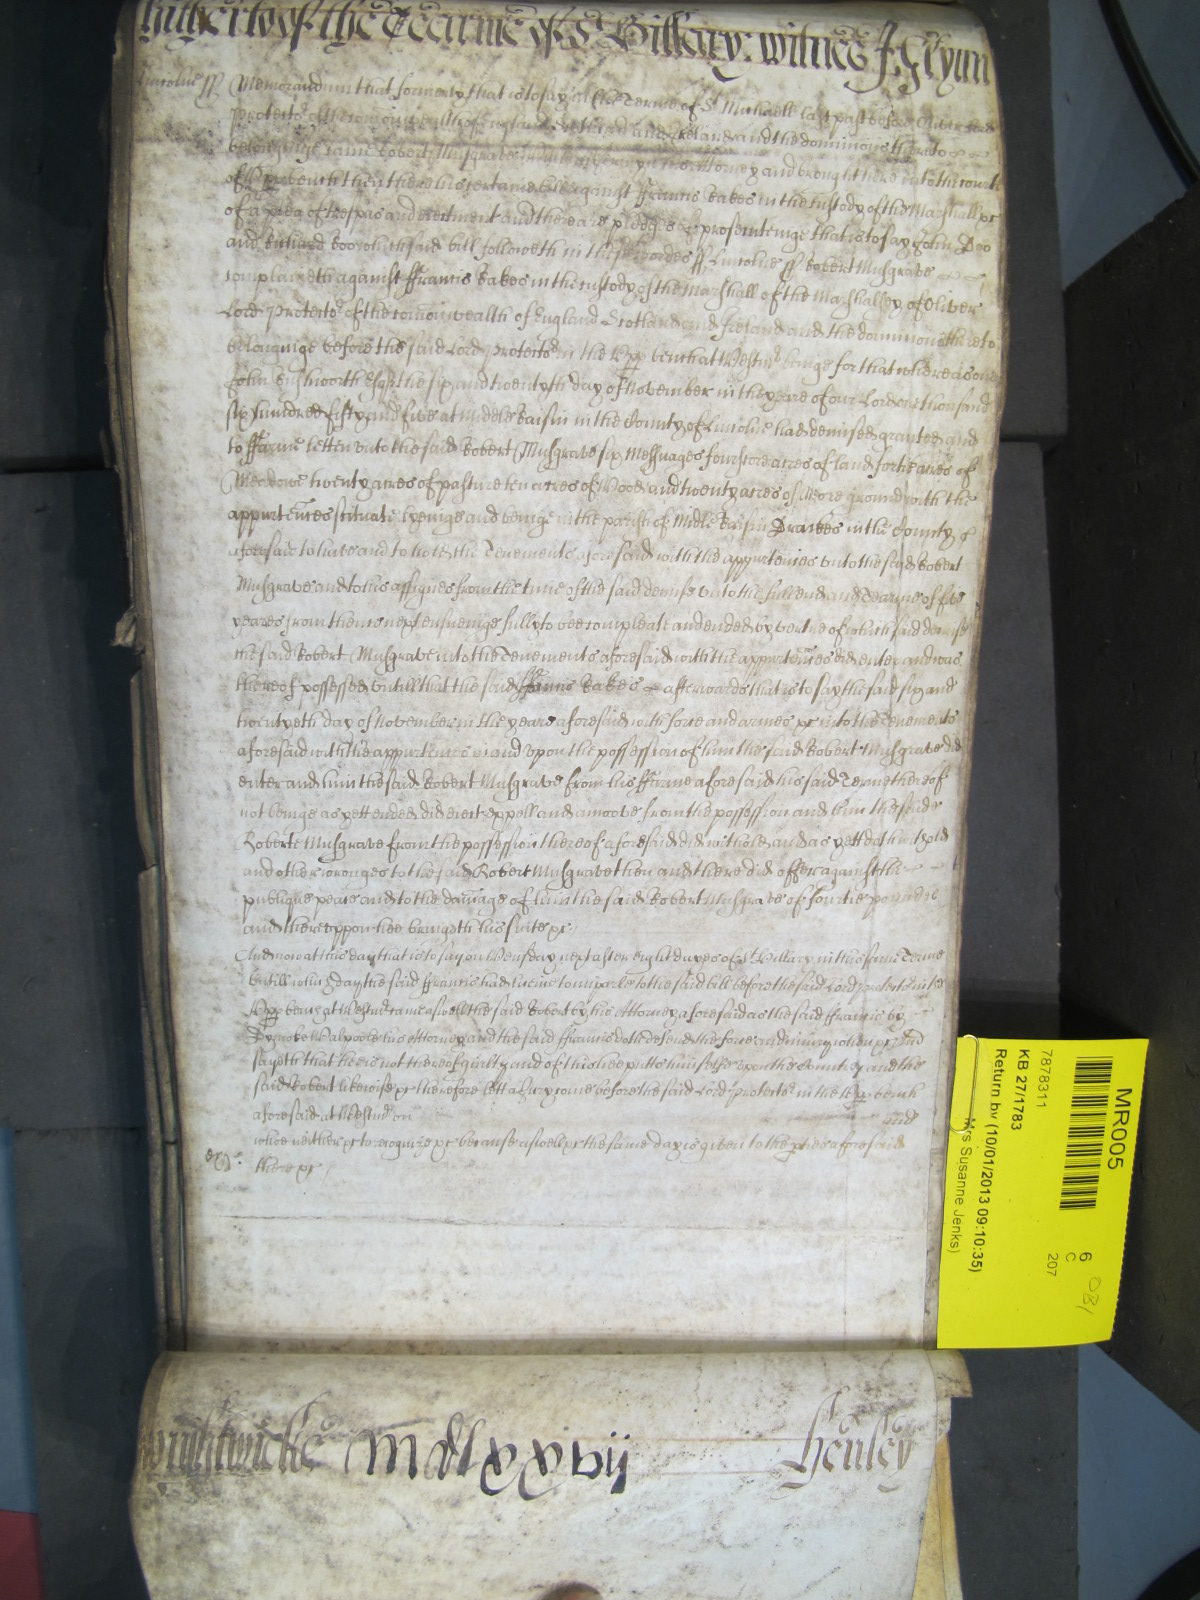 hitherto of the Tearme of St Hillary: witnes J Glynn
Lincolne ss Memorandum that formerly that is to say in the Terme of St Michaell last past before Oliver Lord
Protector of the comonwealth of England Scotland and Ireland and the dominions thereto
belonginge came Robert Musgrave by Attorney and brought here into the court
of the upper bench then there his certaine bill against Francis Eakes in the custody of the Marshall &c
of a plea of trespas and eiectment and there are pledges of prosecutinge that is to say John Doo
and Richard Roo which said bill followeth in these wordes ss Lincolne ss Robert Musgrave
complaineth against Francis Eakes in the custody of the Marshall of the Marshalsey of Oliver
Lord Protector of the comonwealth of England Scotland and Ireland and the dominions thereto
belonginge before the said Lord Protector in the upper bench at Westmr beinge for that whereas one
John Rushworth Esqr the six and twentyth day of November in the yeare of our Lord one thousand
six hundred fifty and five at Midele Raisin in the County of Lincolne had demised graunted and
to ffarme letten unto the said Robert Musgrave six Messuages fourscore acres of land fortie acres of
Meadowe twenty acres of pasture ten acres of Wood and twenty acres of More ground with the
appurtences scituate lyeinge and beinge in the parish of Midle Raisin Drakes in the County
aforesaid to have and to hold the Tenements aforesaid with the appurtences unto the said Robert
Musgrave and to his assignes from the time of the said demise unto the full end and Tearme of five
yeares from thence next ensueinge fully to bee compleate and ended by vertue of which said demise
the said Robert Musgrave into the Tenements aforesaid with the appurtences did enter and was
thereof possessed untill that the said ffrancis Eakes afterwards that is to say the said six and
twentyeth day of November in the yeare aforesaid with force and armes &c into the Tenements
aforesaid with the appurtences in and upon the possession of him the said Robert Musgrave did
enter and him the said Robert Musgrave from his ffarme aforesaid his said Terme thereof
not beinge as yett ended did eiect expell and amoove from the possession and him the said
Roberte Musgrave from the possession thereof aforesaid did withold and as yett doth withold
and other wronges to the said Robert Musgrave then and there did offer against the
publique peace and to the damage of him the said Robert Musgrave of fourtie poundes
and thereuppon hee bringeth his suite &c
And now at this day that is to say on Wensday next after eight dayes of St Hillary in this same Terme
untill which day the said ffrancis had licence to imparle to the said bill before the said Lord Protector in the
upper bench at Westmr came aswell the said Robert by his Attorney aforesaid as the said ffrancis by
Dymoke Walpoole his Attorney and the said ffrancis doth defend the force and iniury when &c And
sayeth that he is not thereof guilty and of this hee putts himselfe upon the Country and the
said Robert likewise &c therefore lett a Jury come before the said Lord Protector in the upper bench
aforesaid at Westmr on and
whoe neither &c to recognize &c because aswell &c the same day is given to the parties aforesaid
there &c
exr
wrightwicke Mdlxxvij Henley
MR005
7878311
KB 27/1783
Return by (10/01/2013 09:10:35)
Mrs Susanne Jenks)
6
C
207